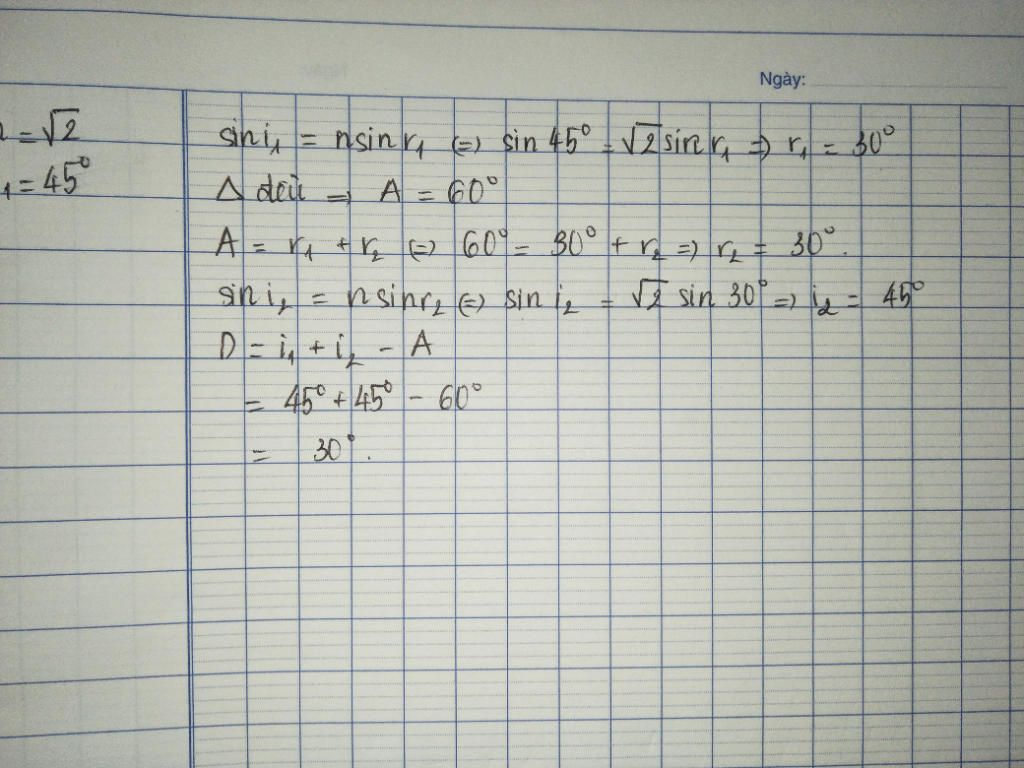 Ngày:
n = √2
1 = 45°
sin i₁ = n sin r₁ (=) sin 45° = √2 sin r₁ => r₁ = 30°
Δ đều => A = 60°
A = r₁ + r₂ (=) 60° = 30° + r₂ => r₂ = 30°.
sin i₂ = n sin r₂ (=) sin i₂ = √2 sin 30° => i₂ = 45°
D = i₁ + i₂ - A
= 45° + 45° - 60°
= 30°.